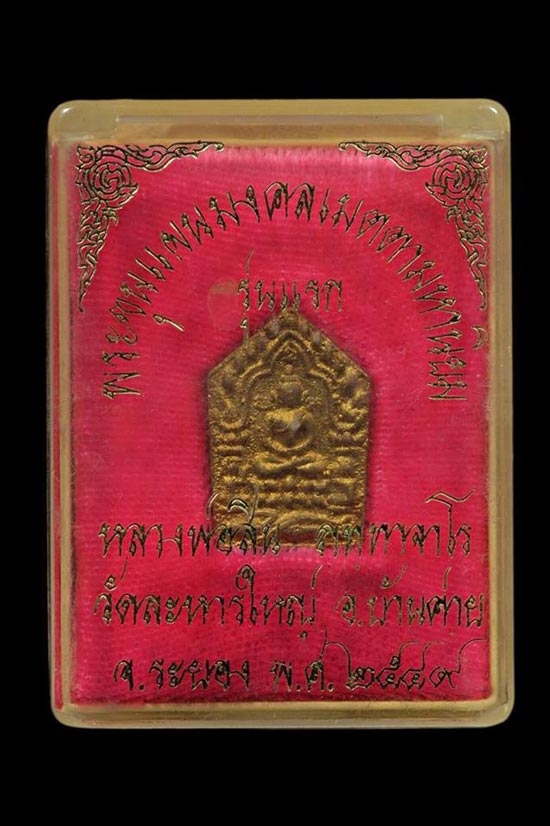 พระขุนแผนมงคลเมตตามหานิยม
รุ่นแรก
หลวงพ่อสิน ภทฺทาจาโร
วัดละหารใหญ่ อ.บ้านค่าย
จ.ระยอง พ.ศ.๒๕๔๙